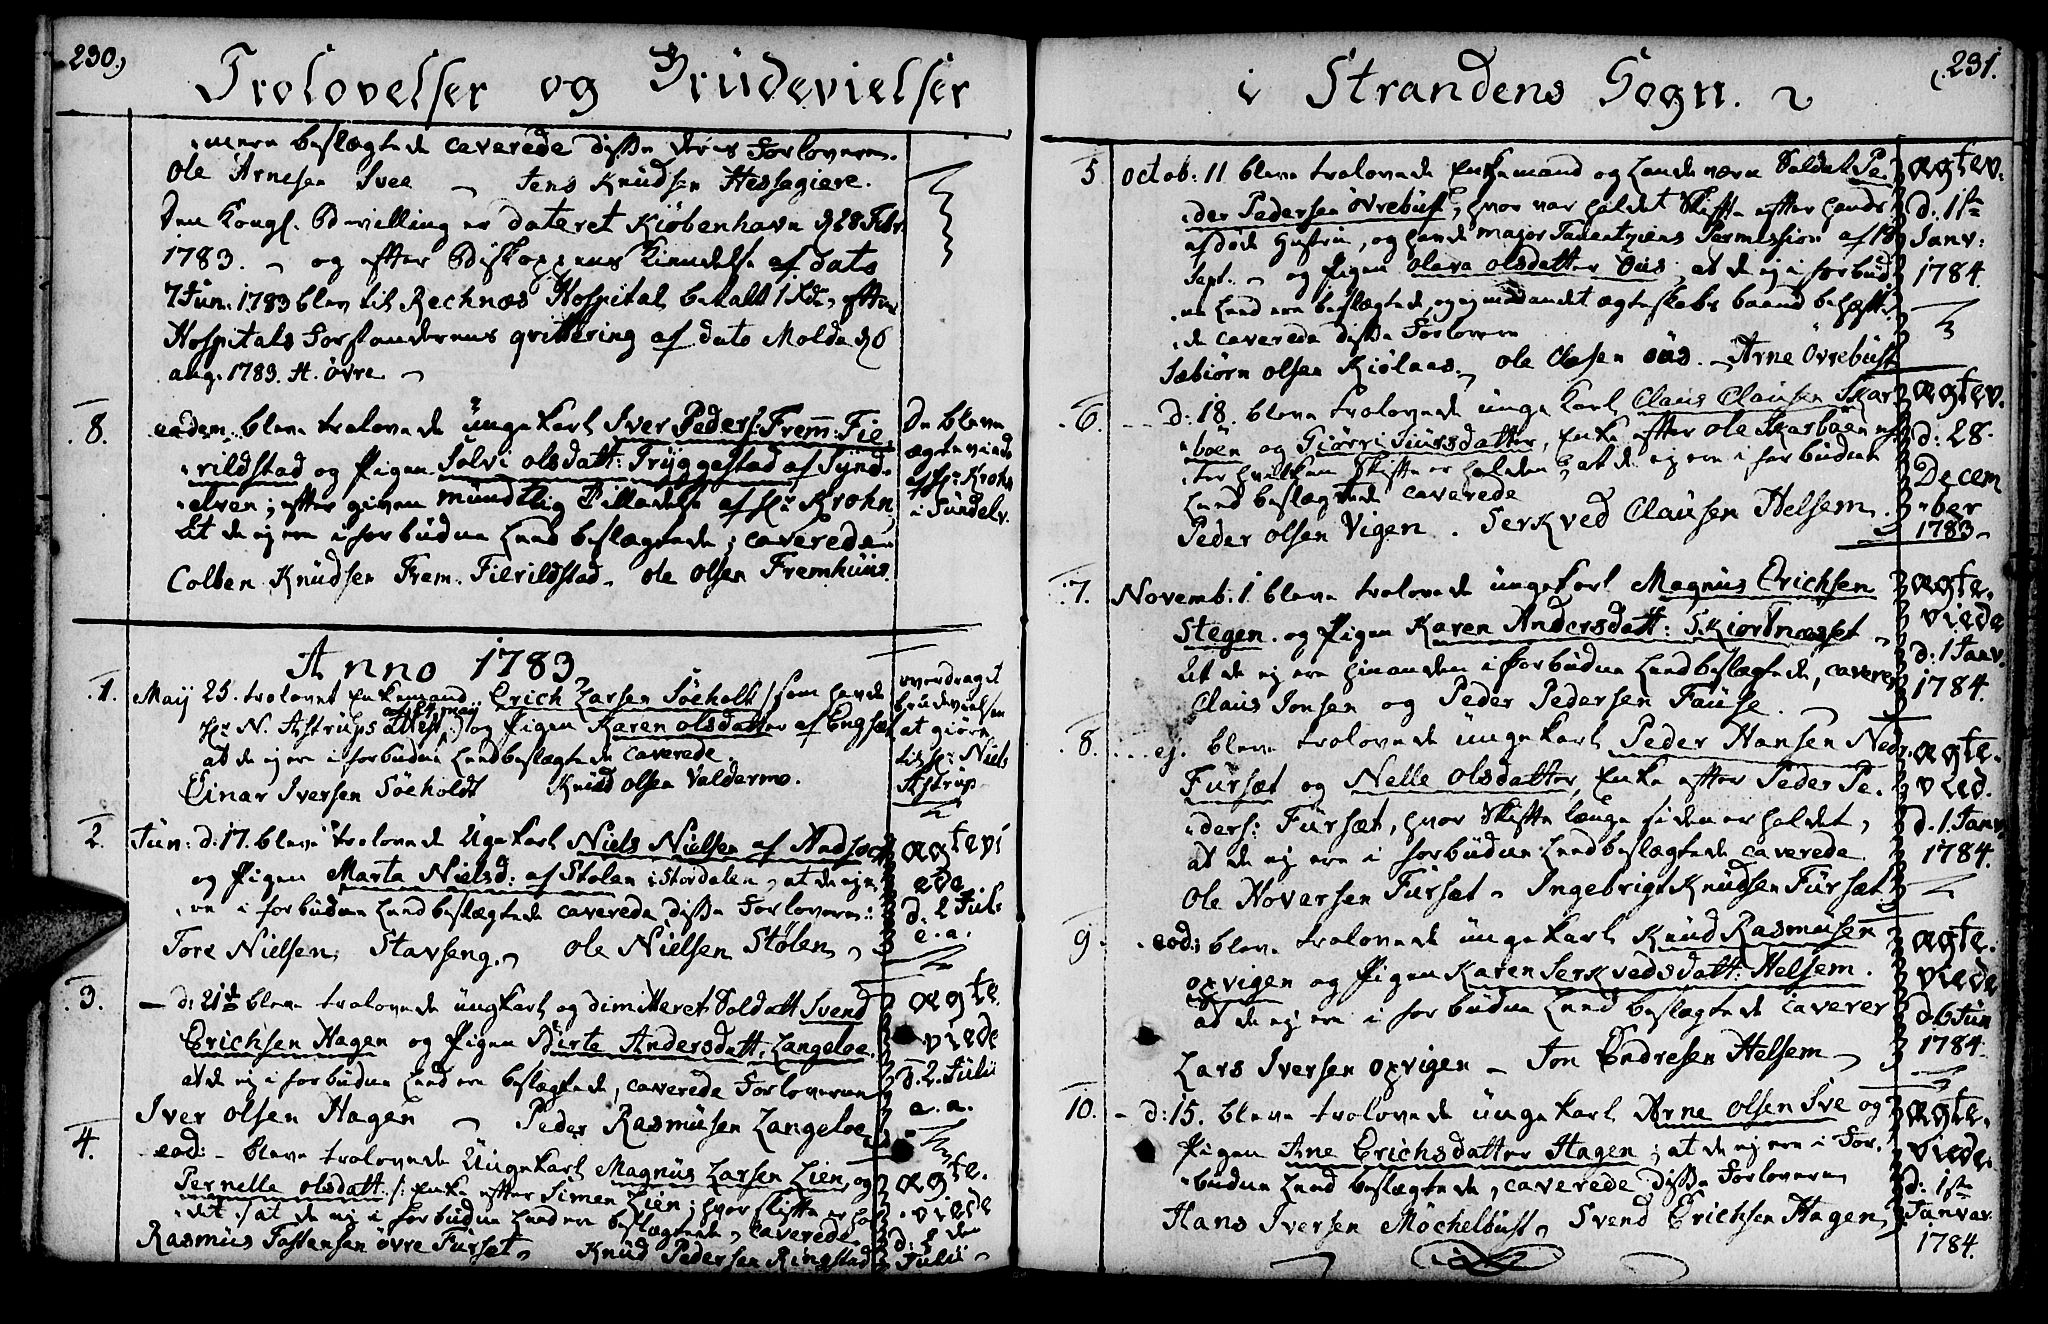 230.
Trolovelser og Brüdevielser
-mere beslægtede caverede disse deres Forlovere.
Ole Arnesen Svee - Jens Knudsen Hessagiere.
Den Kongl. Bevilling er dateret Kiöbenhavn d 28 Febr.
1783. - og efter Biskoppens Kiendelse af dato
7 Jun. 1783 blev til Rechnæs Hospital betalt 1 Rdr, efter
Hospitals Forstanderens qvittering af dato Molde d 6
aug. 1783. H. Övre -
8. eodem bleve trolovede üngekarl Iver Peders: Frem: Fie-
-rildstad og Pigen Solvi olsdatt: Tryggestad af Synd-
-elven; efter given mündtlig Tilladelse af Hr Krohn,
at de ej ere i forbudne Leed beslægtede; caverede
Colben Knüdsen Frem. Fierildstad - ole olsen Fremhüüs.
De bleve
ægteviede
af Hr Krohn
i Sündelv.
Anno 1783
1. Maij 25. trolovet Enkemand Erich Larsen Söeholt / som havde
Hr N. Astrups attest af 24 maij og Pigen Karen olsdatter af Engset
at de ej ere i forbudne Leed beslægtede caverede
Einar Iversen Söeholdt Knüd olsen Valdermo.
overdraget
brudevielsen
at giöre
til Hr: Niels
Astrup
2. Jun: d: 17. bleve trolovede Ungekarl Niels Nielsen af
og Pigen Marta Nielsd: af Stolen i Stordalen, at de ej
ere i forbudne Leed beslægtede caverede disse Forlovere:
Tore Nielsen Stavseng. ole Nielsen Stölen
ægtevi
ede
d. 2 Juli
e. a.
3. - d: 21de bleve trolovede üngkarl og dimitteret Soldatt Svend
Erichsen Hagen og Pigen Birte Andersdatt. Langeloe.
at de ej i forbudne Leed ere beslægtede, caverede Forloverne
Iver olsen Hagen - Peder Rasmüsen Langeloe
ægte.
viede
d. 2. Julii
a. a.
4. eod: - bleve trolovede Üngekarl Magnüs Larsen Lien, og
Pernelle olsdatt. /: Enke efter Simen Lien; hvor skifte er hol
det :/ at de ej i forbudne Leed ere beslægtede, caverede
Rasmüs Tostensen övre Fürset Knüd Pedersen Ringstad
ægte.
viede
d: 2 den
Julii
231.
i Strandens Sogn.
5 octob: 11 bleve trolovede Enkemand og Landeværn Soldat Pe-
-der Pedersen Övrebüst, hvor var holdet Skifte efter hands
afdöde Hustru, og hands major Tanentziens Permission af 18
Sept. - og Pigen Olava olsdatter Öüs, at de ej i forbud-
-ne Leed ere beslægtede, og ej med andet ægteskabs baand behæfte-
-de caverede disse Forlovere
Sæbiörn olsen Kiölaas. ole Clasen öüs. - Arne Övrebüst
ægtev.
d. 1ste
Janv:
1784.
6. - d: 18. bleve trolovede unge Karl Claus Clausen Skar-
-böen og Giörri Siürsdatter, Enke efter ole Skarboen ef-
-ter hvilken Skifte er holden, at de ej ere i forbuden
Leed beslægtede caverede
Peder olsen Vigen. Serkved Claüsen Helsem.
ægtev.
d: 28.
Decem
-ber
1783.
7. Novemb: 1. bleve trolovede üngekarl Magnüs Erichsen
Stegen. og Pigen Karen Andersdatt: Skiortnæsset
at de ej ere hinanden i forbudne Leed beslægtede, caverer
Claus Jonsen og Peder Pedersen Faüse.
ægte.
viede
d: 1 Janv.
1784.
8. ... ej. bleve trolovede üngekarl Peder Hansen Nedr.
Fürsæt og Nelle olsdatter, Enke efter Peder Pe-
-ders: Fürsæt, hvor Skifte længe siden er holdet,
at de ej ere i forbudne Leed beslægtede caverede
Ole Hoversen Fürsæt - Ingebrigt Knüdsen Fürsæt
ægte.
vied.
d. 1. Janv.
1784.
9. eod: bleve trolovede üngekarl Knüd Rasmüsen
opvigen og Pigen Karen Serkvedsdatt: Helsem.
at de ej ere i forbudne Leed beslægtede caverer
Lars Iversen opvigen - Jon Endresen Helsem
ægte.
viede
d. 6 Jun
1784.
10. - d: 15. bleve trolovede üngekarl Arne olsen Sve og
Pigen Ane Erichsdatter Hagen; at de ej ere i For-
-budne Leed beslægtede, caverede disse Forlovere
Hans Iversen Möchelbüst, Svend Erichsen Hagen
ægte.
viede.
d: 1ste
Janvar.
1784.